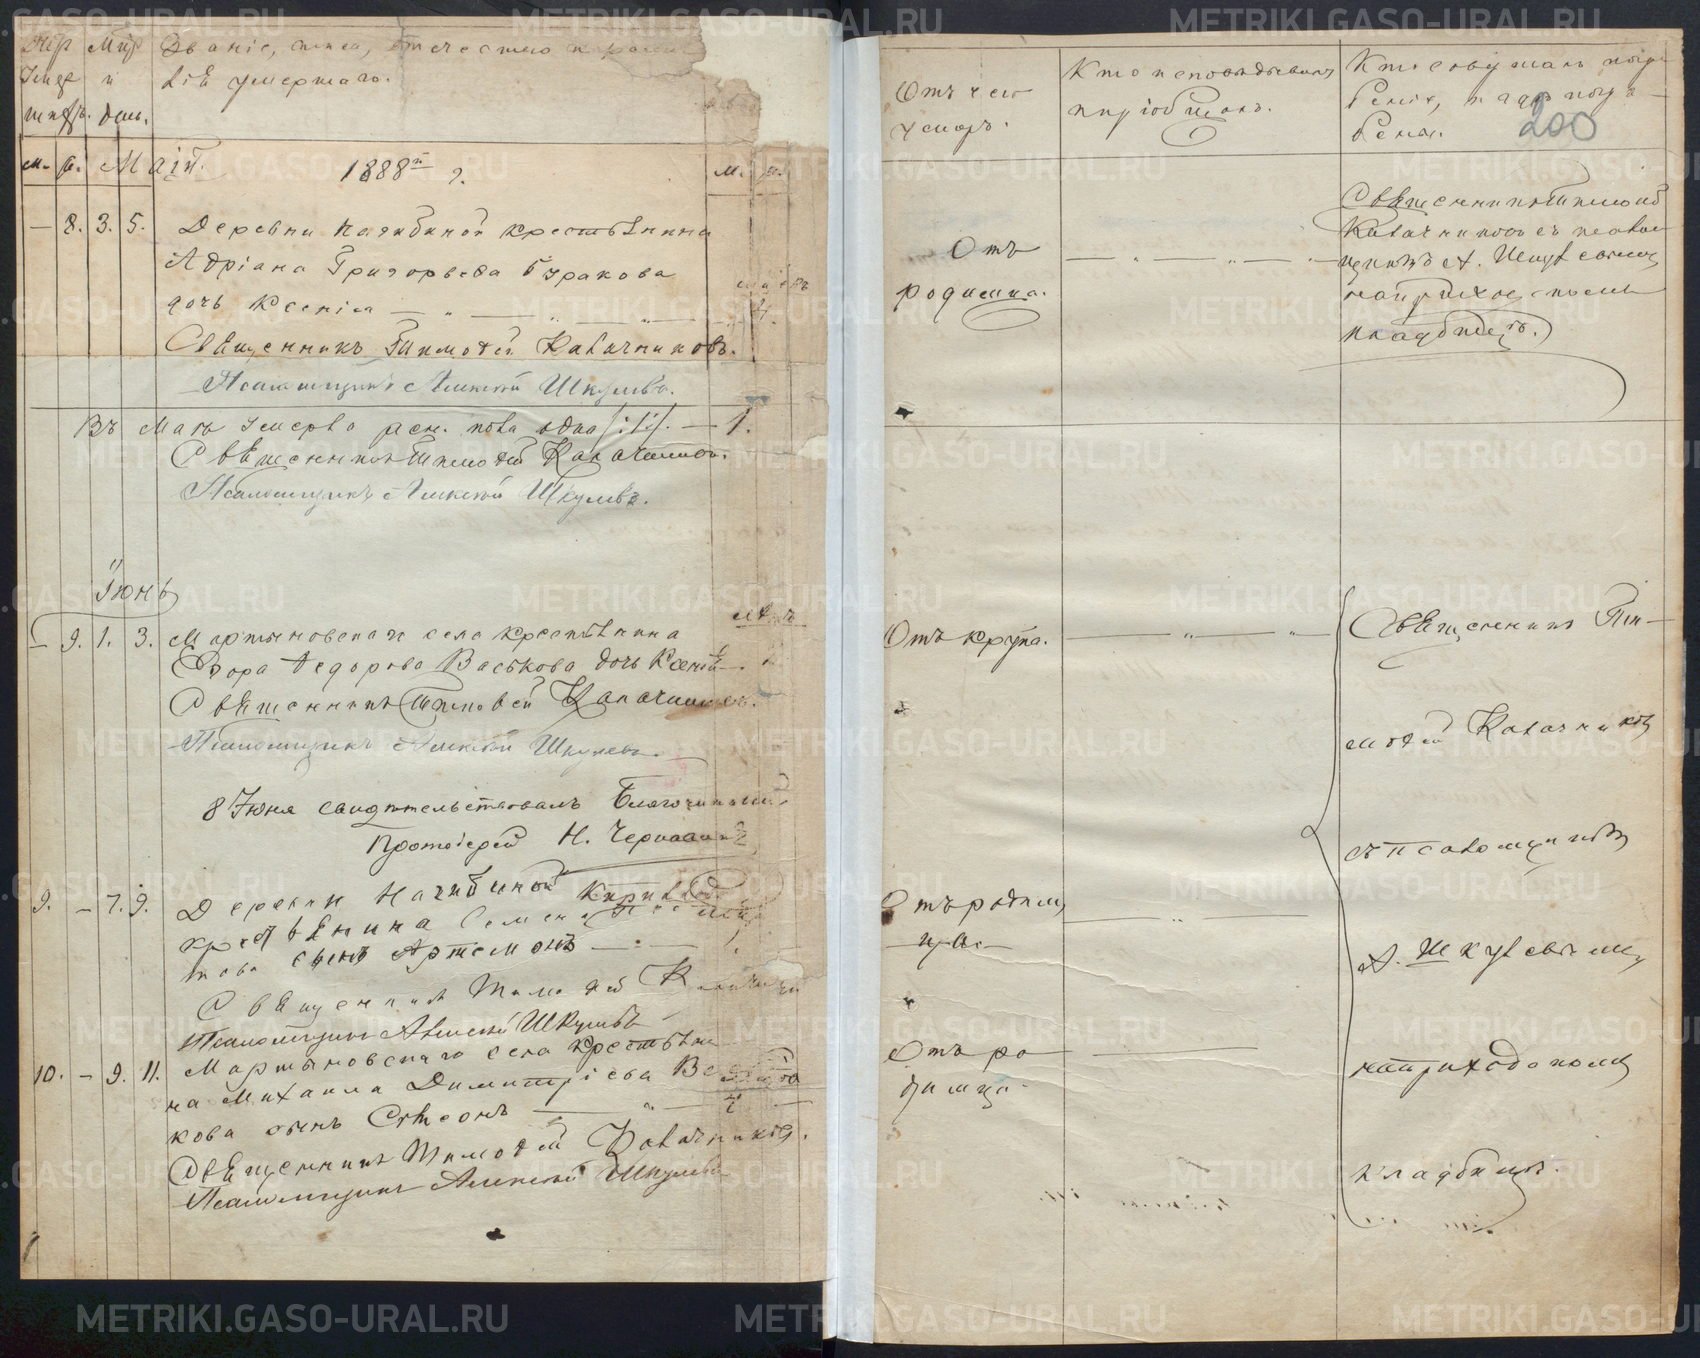 Званіе, имя, отчество и
лія умершаго.
м. ж. Маій. 1888й г. м. ж.
— 8. 3. 5. Деревни Начибиной крестьянина
Адріана Григорьева Буракова
дочь Ксенія — „ — „ — „ —
Священникъ Тимофей Калачниковъ.
Псаломщикъ Алексій Шкулевъ.
Въ Маѣ умерло жен. пола одна /:1:/. — 1.
Священникъ Тимофей Калачниковъ.
Псаломщикъ Алексій Шкулевъ.
Іюнь
— 9. 1. 3. Мартыновскаго села крестьянина
Егора Федорова Васькова дочь Ксенія —
Священникъ Тимофей Калачниковъ.
Псаломщикъ Алексій Шкулевъ.
8 Іюня свидѣтельствовалъ Благочинный
Протоіерей Н.
9. — 7. 9. Деревни Начибиной
крестьянина Семена
това сынъ Артемонъ — „ —
Священникъ Тимофей
Псаломщикъ Алексій Шкулевъ
10. — 9. 11. Мартыновскаго села крестьяни
на Михаила Димитріева Вась
кова сынъ Симеонъ — „ — 1
Священникъ Тимофей Калачниковъ.
Псаломщикъ Алексій Шкулевъ
Отъ чего
умеръ.
Кто исповѣдывалъ
и пріобщалъ.
Кто совершалъ погре
беніе, и гдѣ погре
бены.
200
Отъ
родимца.
— „ — „ —
Священникъ Тимофей
Калачниковъ съ псалом
щикомъ А. Шкулевымъ
на приходскомъ
кладбищѣ.
Отъ крупа.
— „ — „ —
Священникъ Ти—
мофей Калачников
съ псаломщиком
А. Шкулевымъ
на приходском
кладбищѣ.
Отъ родим
ца.
— „ —
Отъ ро
димца.
METRIKI.GASO-URAL.RU